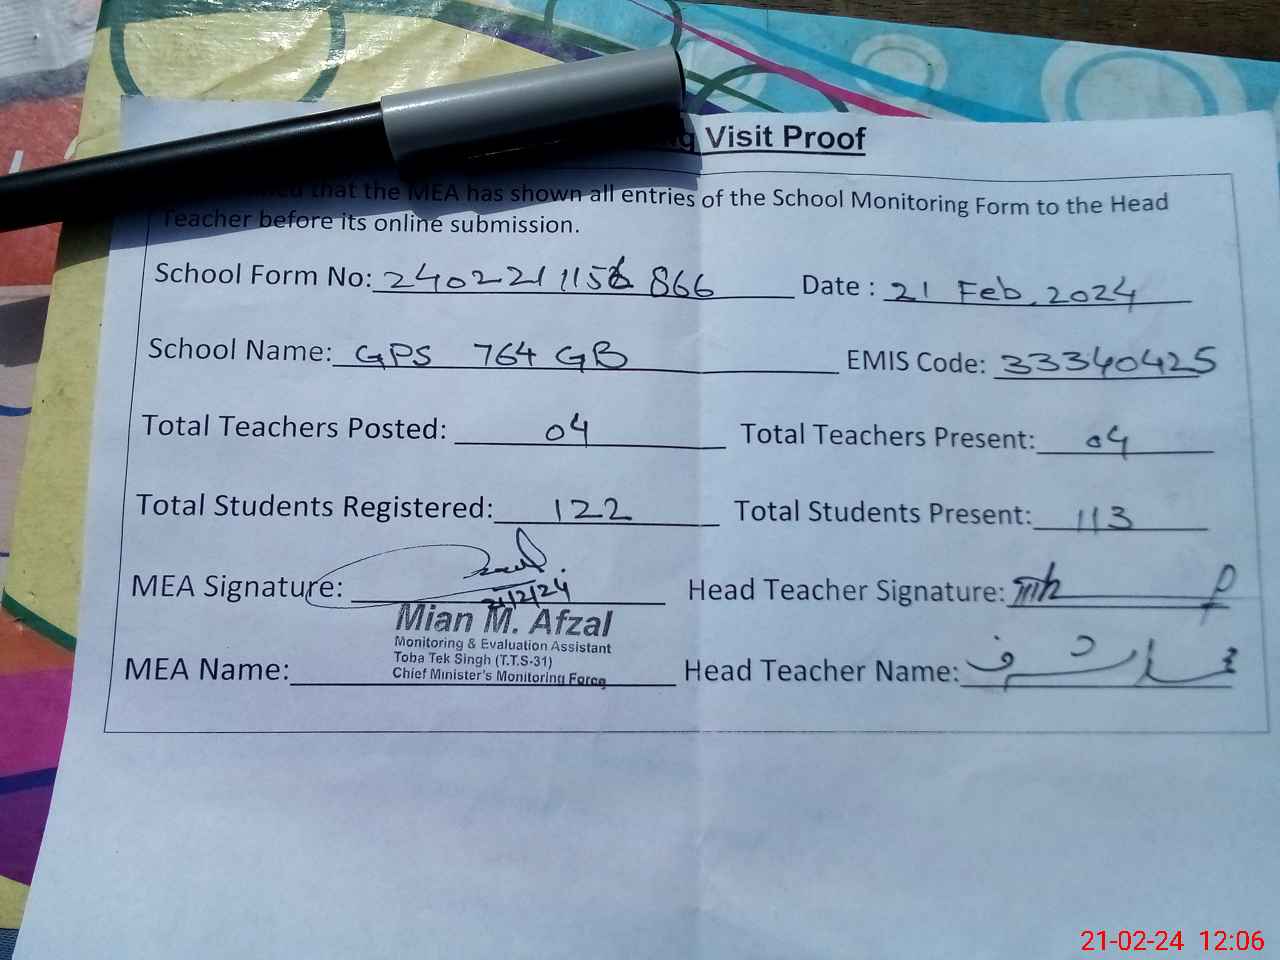 Visit Proof
that the MEA has shown all entries of the School Monitoring Form to the Head
Teacher before its online submission.
School Form No: 2402211156 866 Date : 21 Feb, 2024
School Name: GPS 764 GB EMIS Code: 33340425
Total Teachers Posted: 04 Total Teachers Present: 04
Total Students Registered: 122 Total Students Present: 113
MEA Signature: 21/2/24 Head Teacher Signature:
Mian M. Afzal
Monitoring & Evaluation Assistant
Toba Tek Singh (T.T.S-31)
Chief Minister's Monitoring Force
MEA Name: Head Teacher Name:
21-02-24 12:06